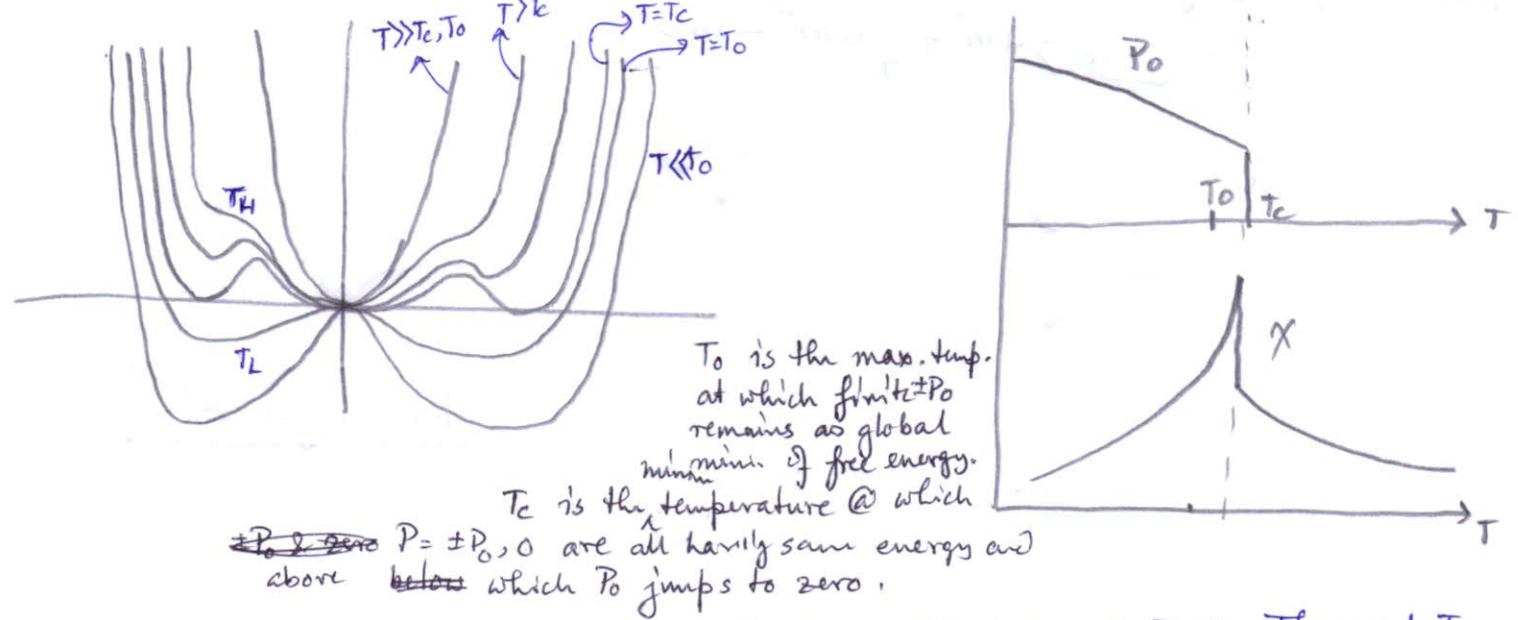 T>>Tc,To
T>Tc
T=Tc
T=To
T<<To
TH
TL
Po
To
Tc
T
X
T
To is the max. temp.
at which finite ±Po
remains as global
minm mini. of free energy.
Tc is the temperature @ which
±Po & zero P = ±Po, 0 are all having same energy and
above below which Po jumps to zero.